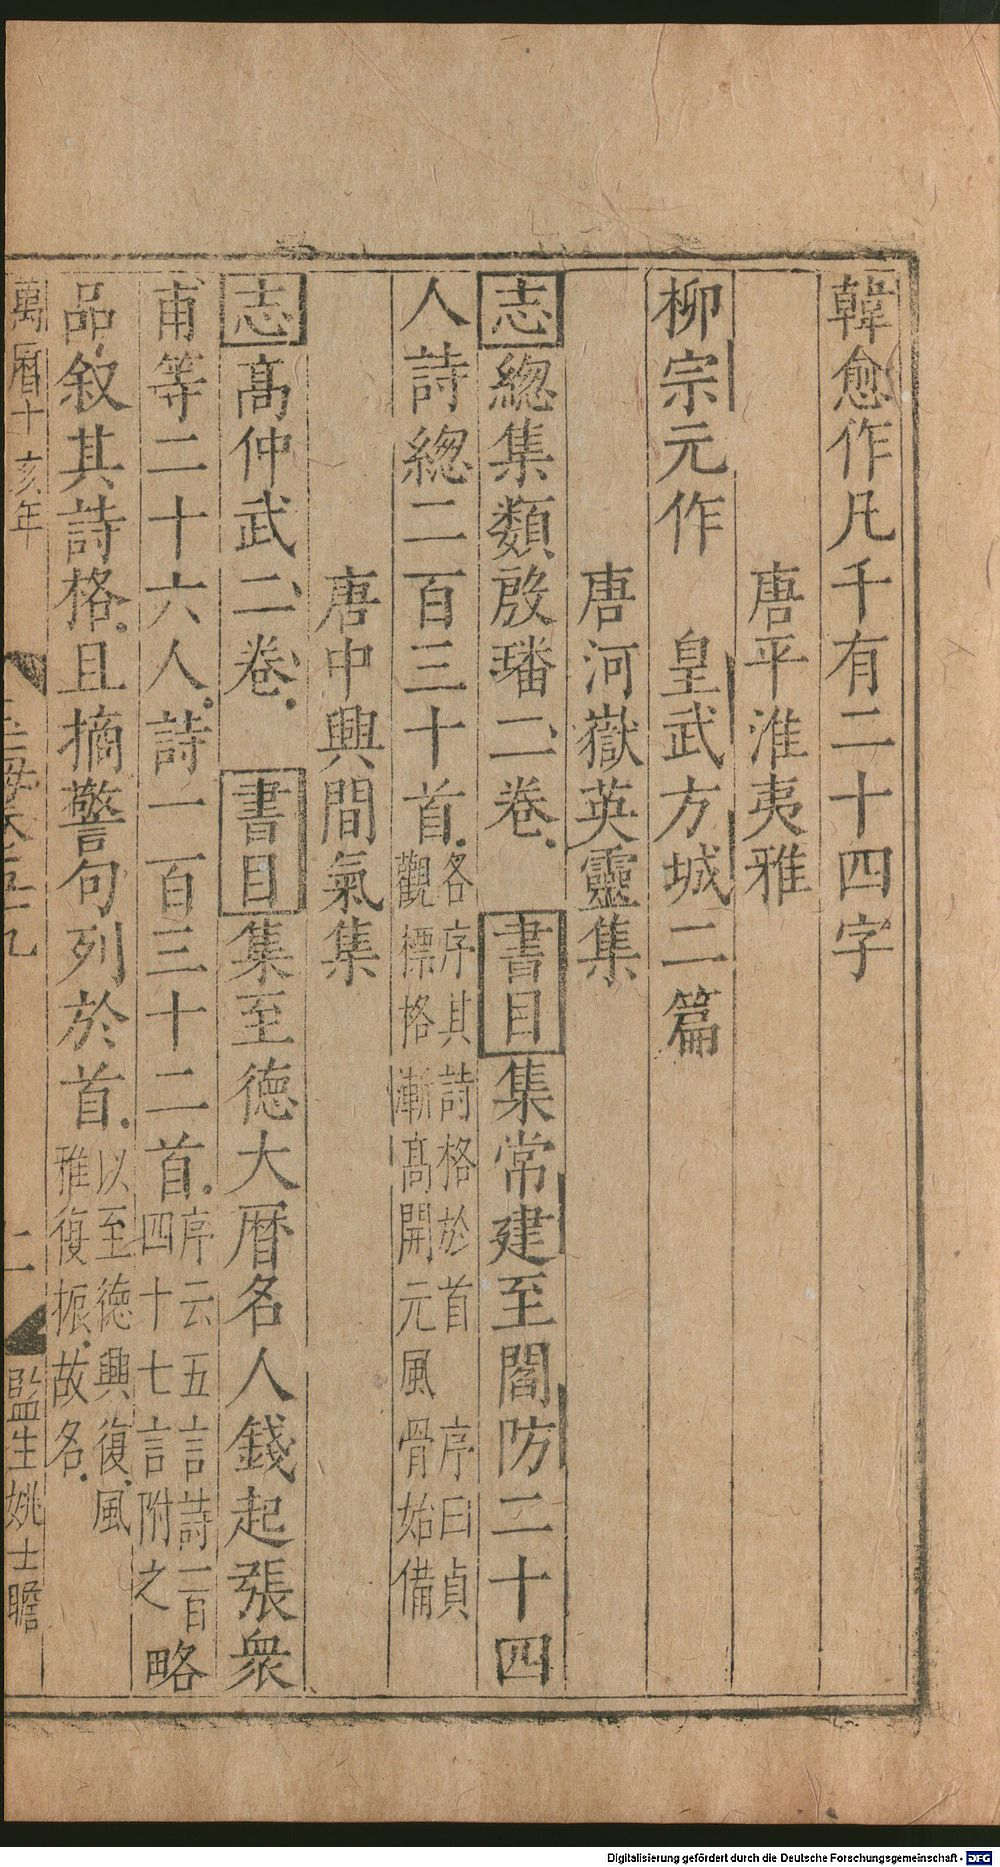 韓愈作凡千有二十四字
唐平淮夷雅
柳宗元作　皇武方城二篇
唐河嶽英靈集
志緫集類殷璠二卷　書目集常建至閻防二十四
人詩緫二百三十首各序其詩格於首　序曰貞
觀標格漸髙開元風骨始備
唐中興間氣集
志髙仲武二卷　書目集至徳大曆名人錢起張衆
甫等二十六人詩一百三十二首序云五言詩一百
四十七言附之略
品敘其詩格且摘警句列於首以至徳興復風
雅復振故名
萬曆十亥年
二
監生姚士瞻
Digitalisierung gefördert durch die Deutsche Forschungsgemeinschaft - DFG